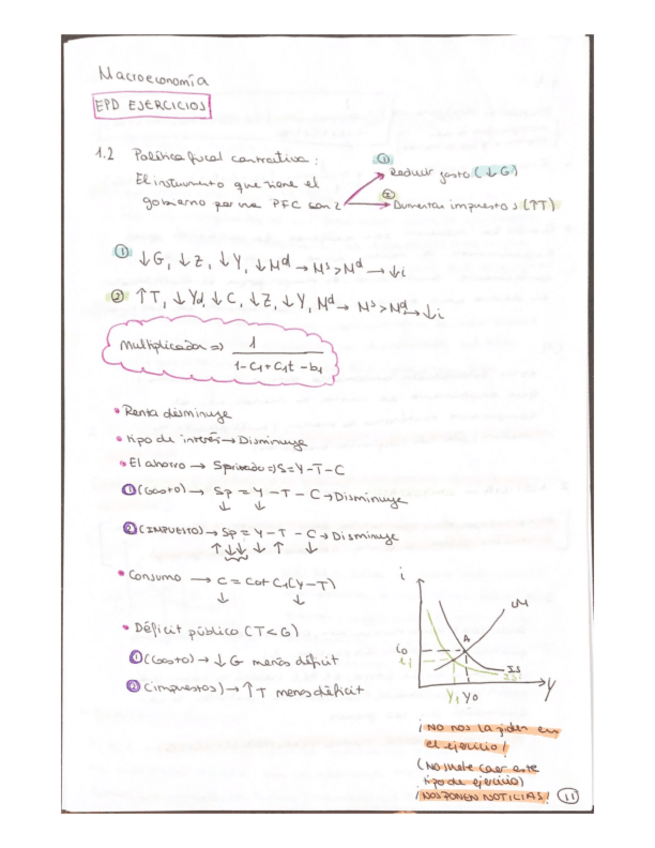 Macroeconomía
EPD EJERCICIOS
1.2 Política fiscal contractiva:
El instrumento que tiene el
gobierno para una PFC son 2
① Reducir gasto (↓G)
② Aumentar impuestos (↑T)
① ↓G, ↓Z, ↓Y, ↓Md → Ms > Md → ↓i
② ↑T, ↓Yd, ↓C, ↓Z, ↓Y, Md → Ms > Md → ↓i
Multiplicador ⇒ 1
1-C1+C1t-b1
• Renta disminuye
• tipo de interés → Disminuye
• El ahorro → Sprivado ⇒ S=Y-T-C
① (Gasto) → Sp = Y - T - C → Disminuye
↓ ↓
② (IMPUESTO) → Sp = Y - T - C → Disminuye
↑↓↓ ↓ ↑ ↓
• Consumo → C = Co+C1(Y-T)
↓ ↓
• Déficit público (T<G)
① (Gasto) → ↓G menos déficit
② (impuestos) → ↑T menos déficit
i
LM
A
i0
i1
IS
IS1
Y1 Y0 Y
¡No nos la piden en
el ejercicio!
(No suele caer este
tipo de ejercicio)
¡NOS PONEN NOTICIAS!
11